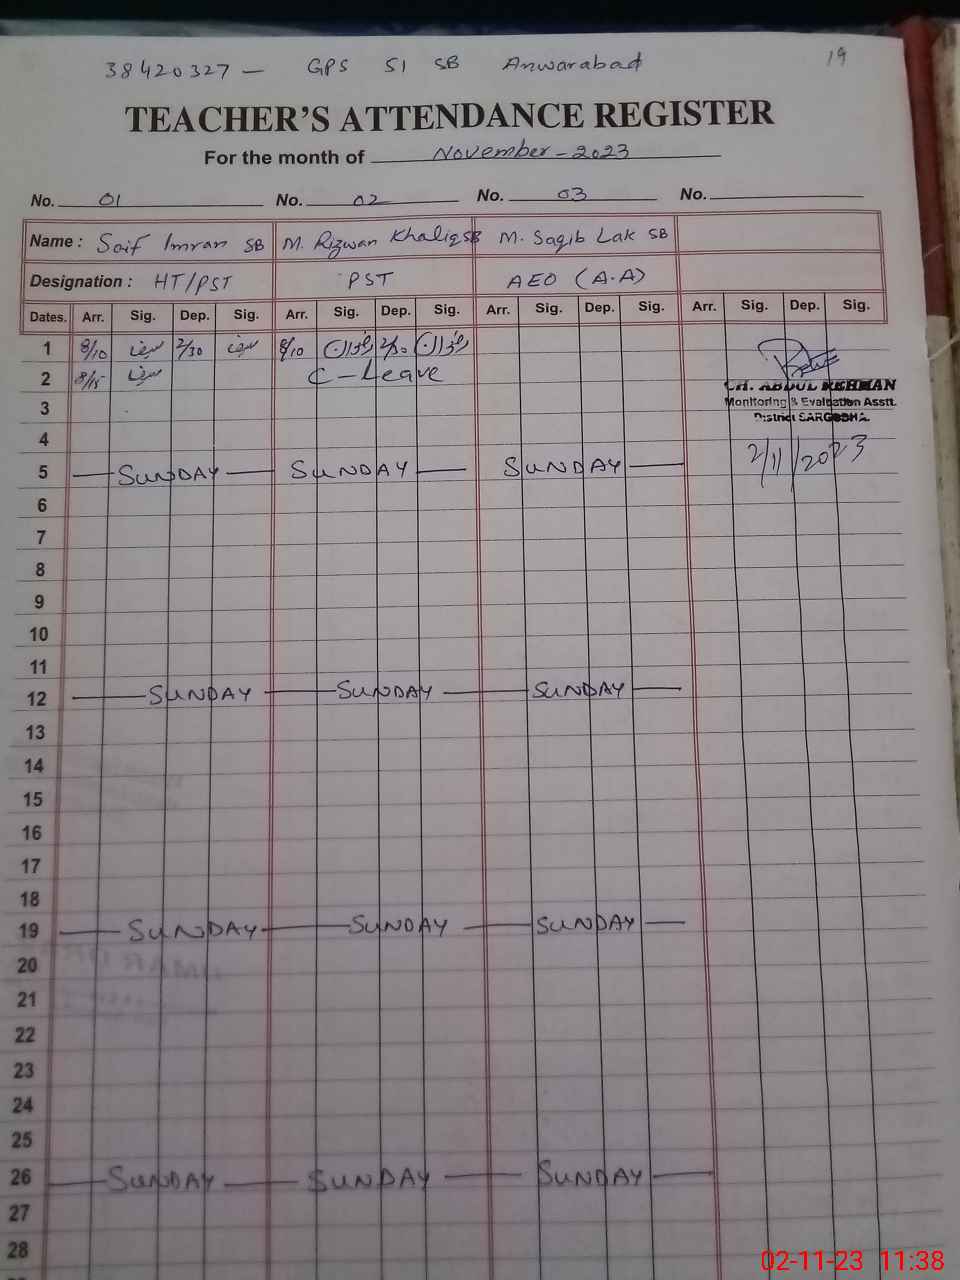 38420327 — GPS 51 SB Anwarabad 19
TEACHER'S ATTENDANCE REGISTER
For the month of November-2023
No. 01 No. 02 No. 03 No.
Name : Saif Imran SB M. Rizwan Khaliq SB M. Saqib Lak SB
Designation : HT/PST PST AEO (A.A)
Dates. Arr. Sig. Dep. Sig. Arr. Sig. Dep. Sig. Arr. Sig. Dep. Sig. Arr. Sig. Dep. Sig.
1 8/10 سیف 2/30 سیف 8/10 رضوان 2/30 رضوان
2 8/15 سیف C-Leave
CH. ABDUL REHMAN
Monitoring & Evaluation Asstt.
3
District SARGODHA.
4
2/11/2023
5 SUNDAY SUNDAY SUNDAY
6
7
8
9
10
11
12 SUNDAY SUNDAY SUNDAY
13
14
15
16
17
18
19 SUNDAY SUNDAY SUNDAY
20
21
22
23
24
25
26 SUNDAY SUNDAY SUNDAY
27
28
02-11-23 11:38